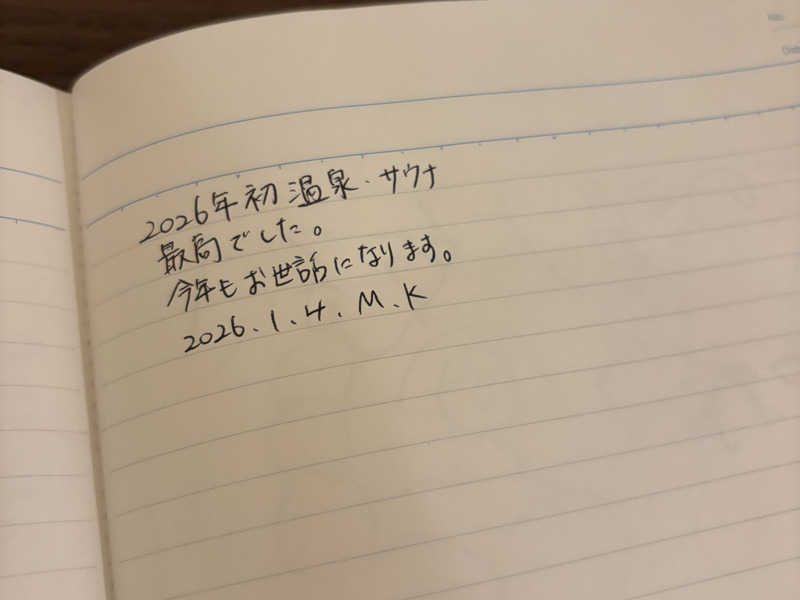 2026年初温泉・サウナ
最高でした。
今年もお世話になります。
2026.1.4.M.K